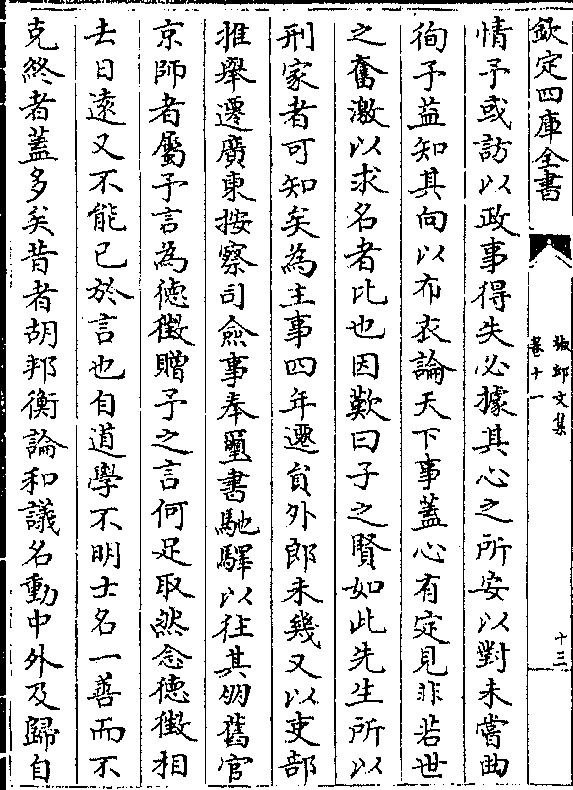 欽定四庫全書
椒邱文集
卷十一
十三
情予或訪以政事得失必據其心之所安以對未嘗曲
徇予益知其向以布衣論天下事蓋心有定見非若世
之奮激以求名者比也因歎曰子之賢如此先生所以
刑家者可知矣為主事四年遷貟外郎未幾又以吏部
推舉遷廣東按察司僉事奉璽書馳驛以往其僚舊官
京師者屬予言為德徵贈予之言何足取然念德徵相
去日遠又不能已於言也自道學不明士名一善而不
克終者蓋多矣昔者胡邦衡論和議名動中外及歸自